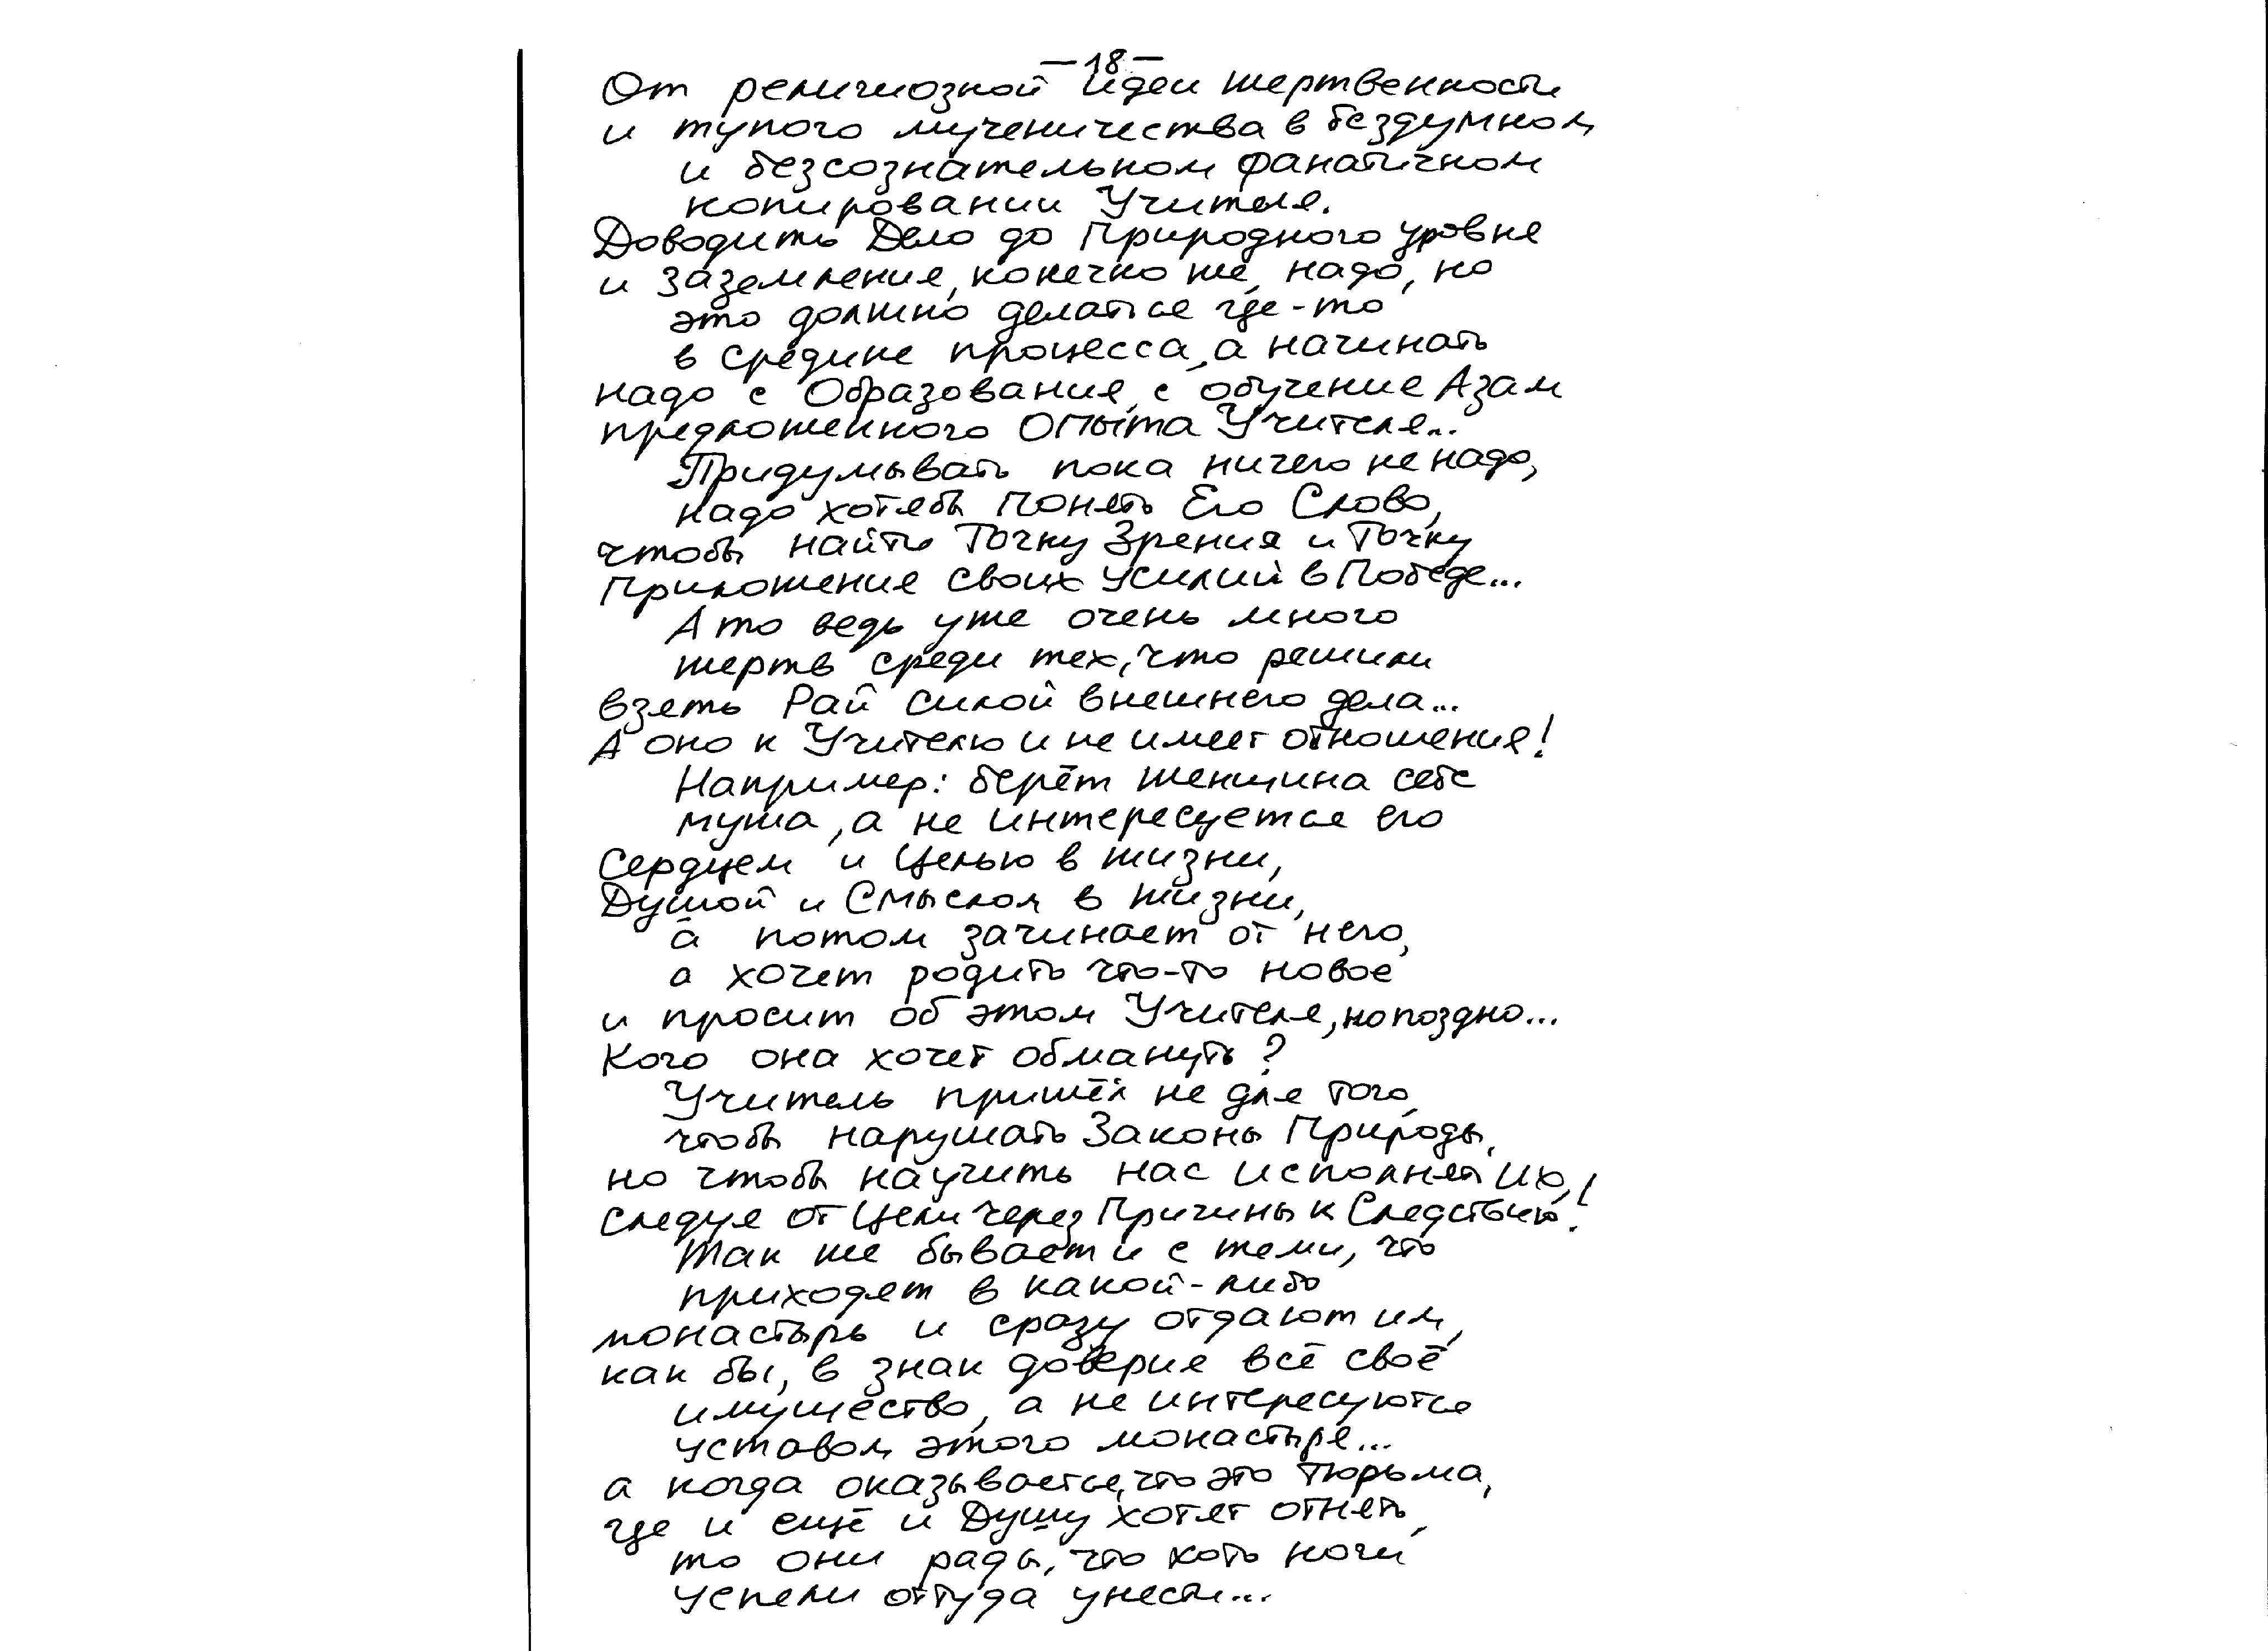 —18—
От религиозной идеи жертвенности
и тупого мученичества в бездумном
и безсознательном фанатичном
копировании Учителя.
Доводить Дело до Природного уровня
и заземления, конечно же, надо, но
это должно делаться где-то
в средине процесса, а начинать
надо с Образования, с обучения Азам
предложенного Опыта Учителя...
Придумывать пока ничего не надо,
надо хотябы понять Его Слово,
чтобы найти Точку Зрения и Точку
Приложения своих усилий в Победе...
А то ведь уже очень много
жертв среди тех, что решили
взять Рай силой внешнего дела...
А оно к Учителю и не имеет отношения!
Например: берёт женщина себе
мужа, а не интересуется его
Сердцем и Целью в жизни,
Душой и Смыслом в жизни,
а потом зачинает от него,
а хочет родить что-то новое
и просит об этом Учителя, но поздно...
Кого она хочет обмануть?
Учитель пришёл не для того,
чтобы нарушать Законы Природы,
но чтобы научить нас исполнять их,
следуя от Цели через Причины к Следствию!
Так же бывает и с теми, что
приходят в какой-либо
монастырь и сразу отдают им,
как бы, в знак доверия всё своё
имущество, а не интересуются
уставом этого монастыря...
а когда оказывается, что это тюрьма,
где и ещё и Душу хотят отнять,
то они рады, что хоть ноги
успели оттуда унести...